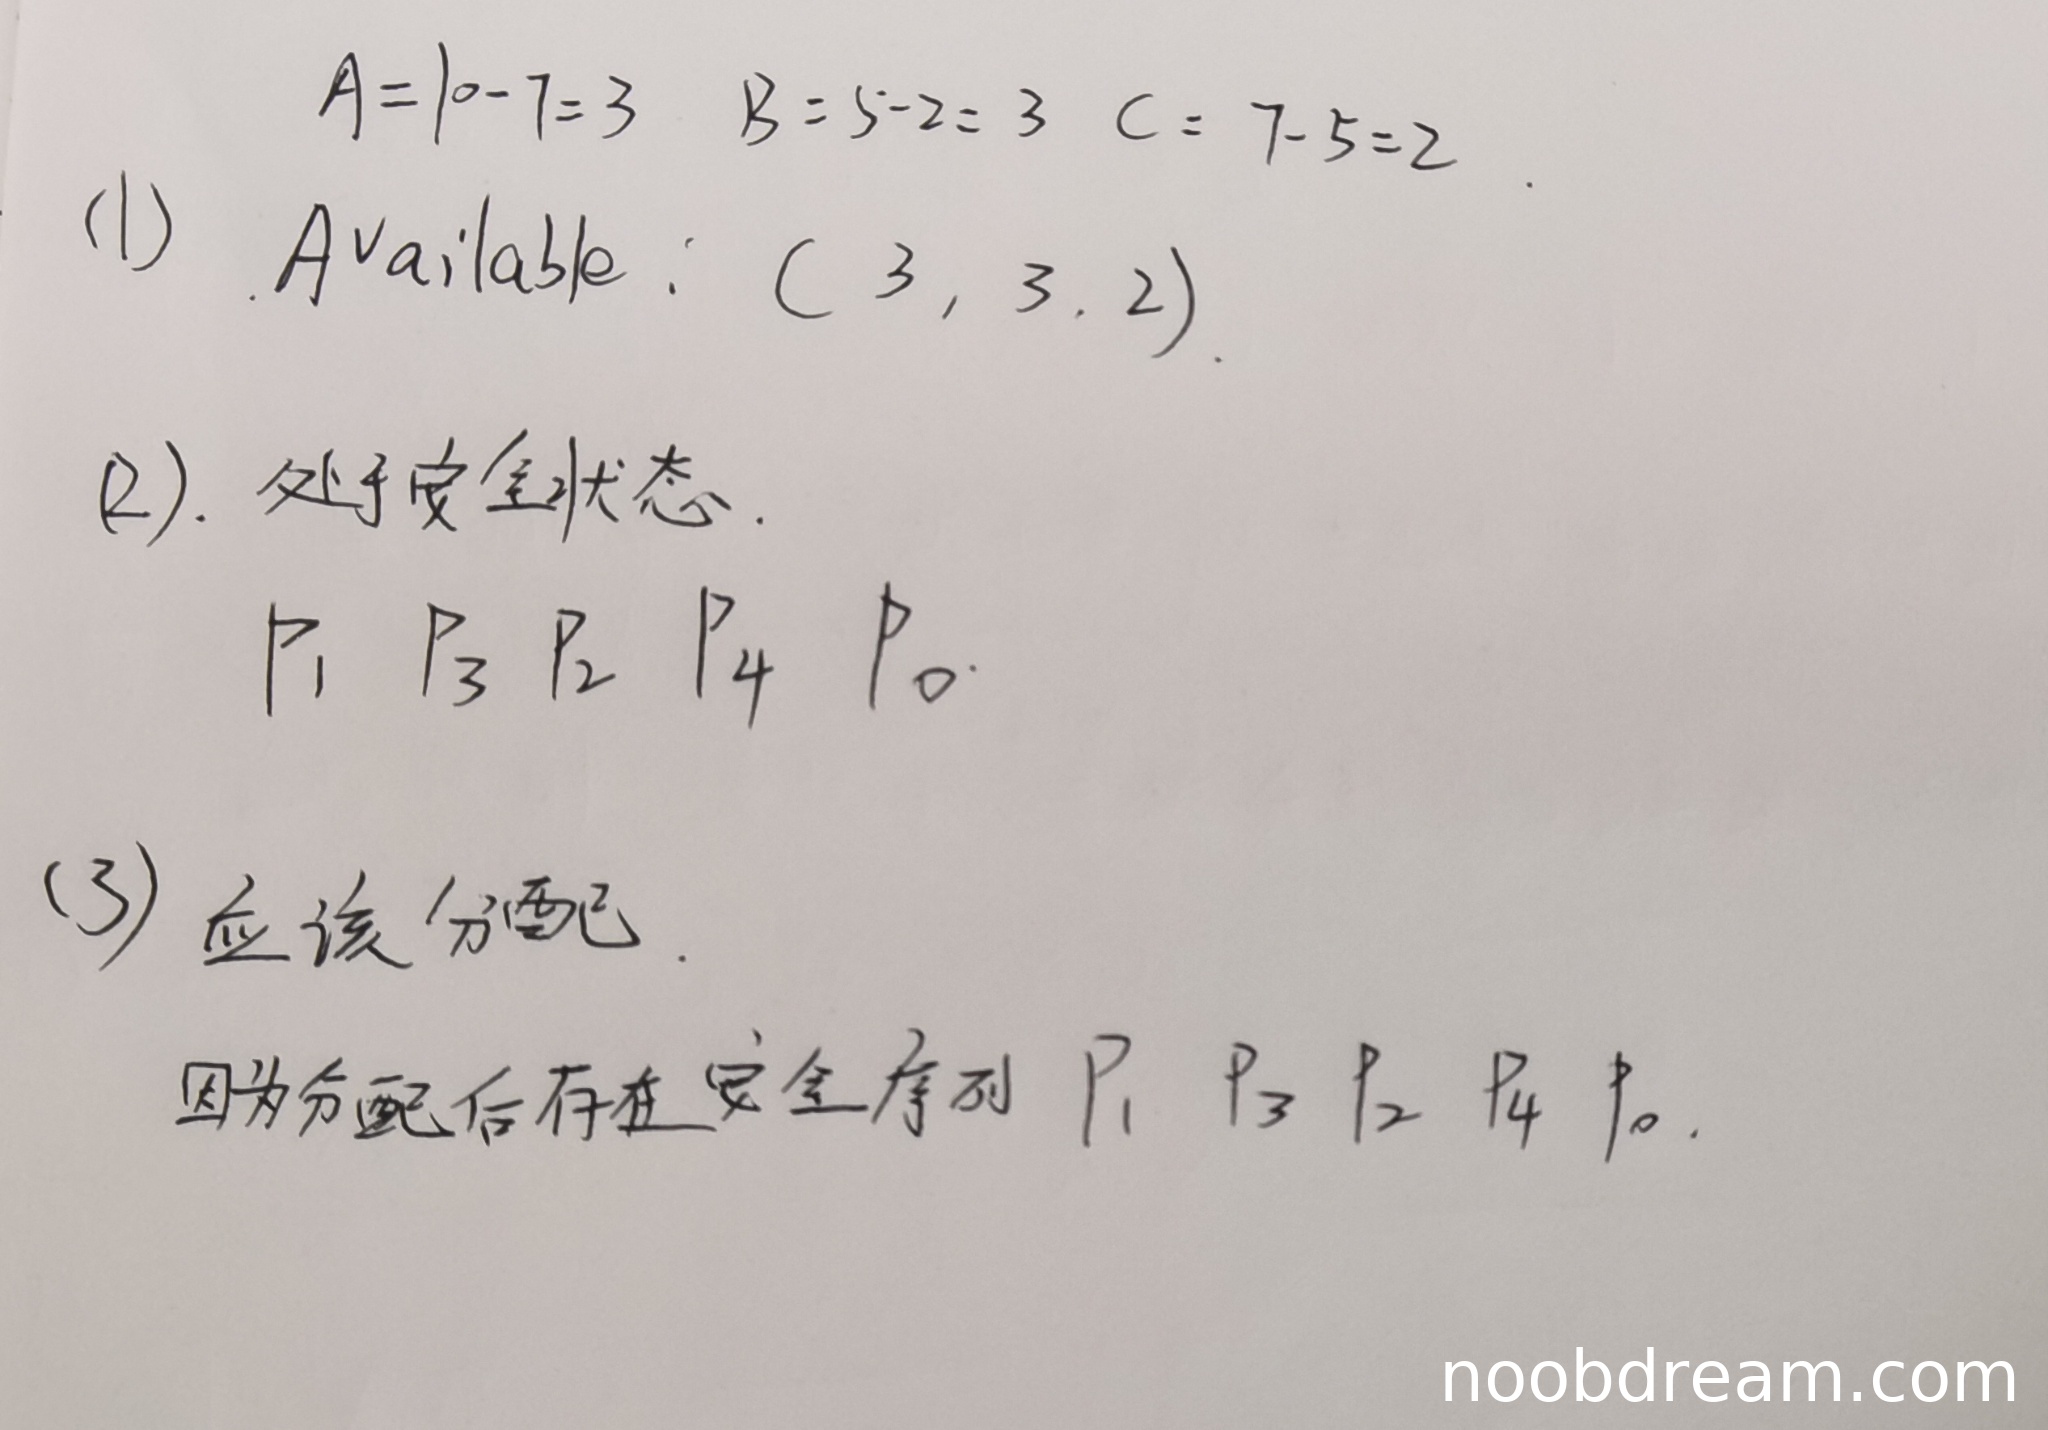 A=10-7=3 B=5-2=3 C=7-5=2.
(1) Available: (3, 3. 2).
(2). 处于安全状态.
P1 P3 P2 P4 P0.
(3) 应该分配.
因为分配后存在安全序列 P1 P3 P2 P4 P0.
noobdream.com